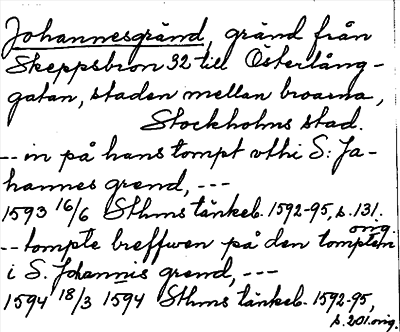 Johannesgränd, gränd från
Skeppsbron 32 till Österlång-
gatan, staden mellan broarna,
Stockholms stad.
-- in på hans tompt vthi S: Jo-
hannes grend, ---
1593 16/6 Sthms tänkeb. 1592-95, s. 131.
orig.
-- tompte breffwen på den tompten
i S. Johannis grend, ---
1594 18/3 1594 Sthms tänkeb. 1592-95,
s. 201. orig.